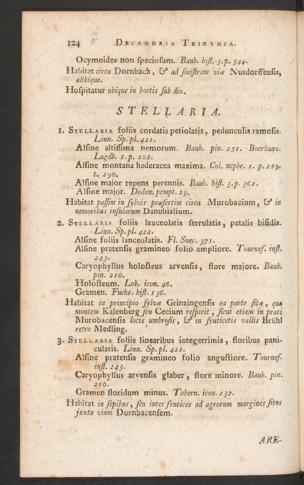 124 DECANDRIA TRIGYNIA.
Ocymoides non speciosum. Bauh. hist. 3. p. 344.
Habitat circa Dornbach, & ad sinistram viæ Nusdorffensis,
alibique.
Hospitatur ubique in hortis sub dio.
STELLARIA.
1. STELLARIA foliis cordatis petiolatis, pedunculis ramosis.
Linn. Sp. pl. 421.
Alsine altissima nemorum. Bauh. pin. 251. Boerhaav.
Lugdb. 1. p. 208.
Alsine montana hederacea maxima. Col. nephr. 1. p. 289.
t. 290.
Alsine major repens perennis. Bauh. hist. 3. p. 362.
Alsine major. Dodon. pempt. 29.
Habitat passim in sylvis præsertim circa Murobacium, & in
nemoribus insularum Danubialium.
2. STELLARIA foliis lanceolatis serrulatis, petalis bifidis.
Linn. Sp. pl. 422.
Alsine foliis lanceolatis. Fl. Suec. 371.
Alsine pratensis gramineo folio ampliore. Tournef. inst.
243.
Caryophyllus holosteus arvensis, flore majore. Bauh.
pin. 210.
Holosteum. Lob. icon. 46.
Gramen. Fuchs. hist. 136.
Habitat in principio sylvæ Grinzingensis ea parte sitæ, qua
montem Kalenberg seu Cecium respicit, sicut etiam in prati
Murobacensis locis umbrosis, & in fruticetis vallis Brühl
retro Medling.
3. STELLARIA foliis linearibus integerrimis, floribus pani-
culatis. Linn. Sp. pl. 422.
Alsine pratensis gramineo folio angustiore. Tournef.
inst. 243.
Caryophyllus arvensis glaber, flore minore. Bauh. pin.
210.
Gramen floridum minus. Tabern. icon. 232.
Habitat in sepibus, seu inter frutices ad agrorum margines sitos
juxta viam Dornbacensem.
ARE-